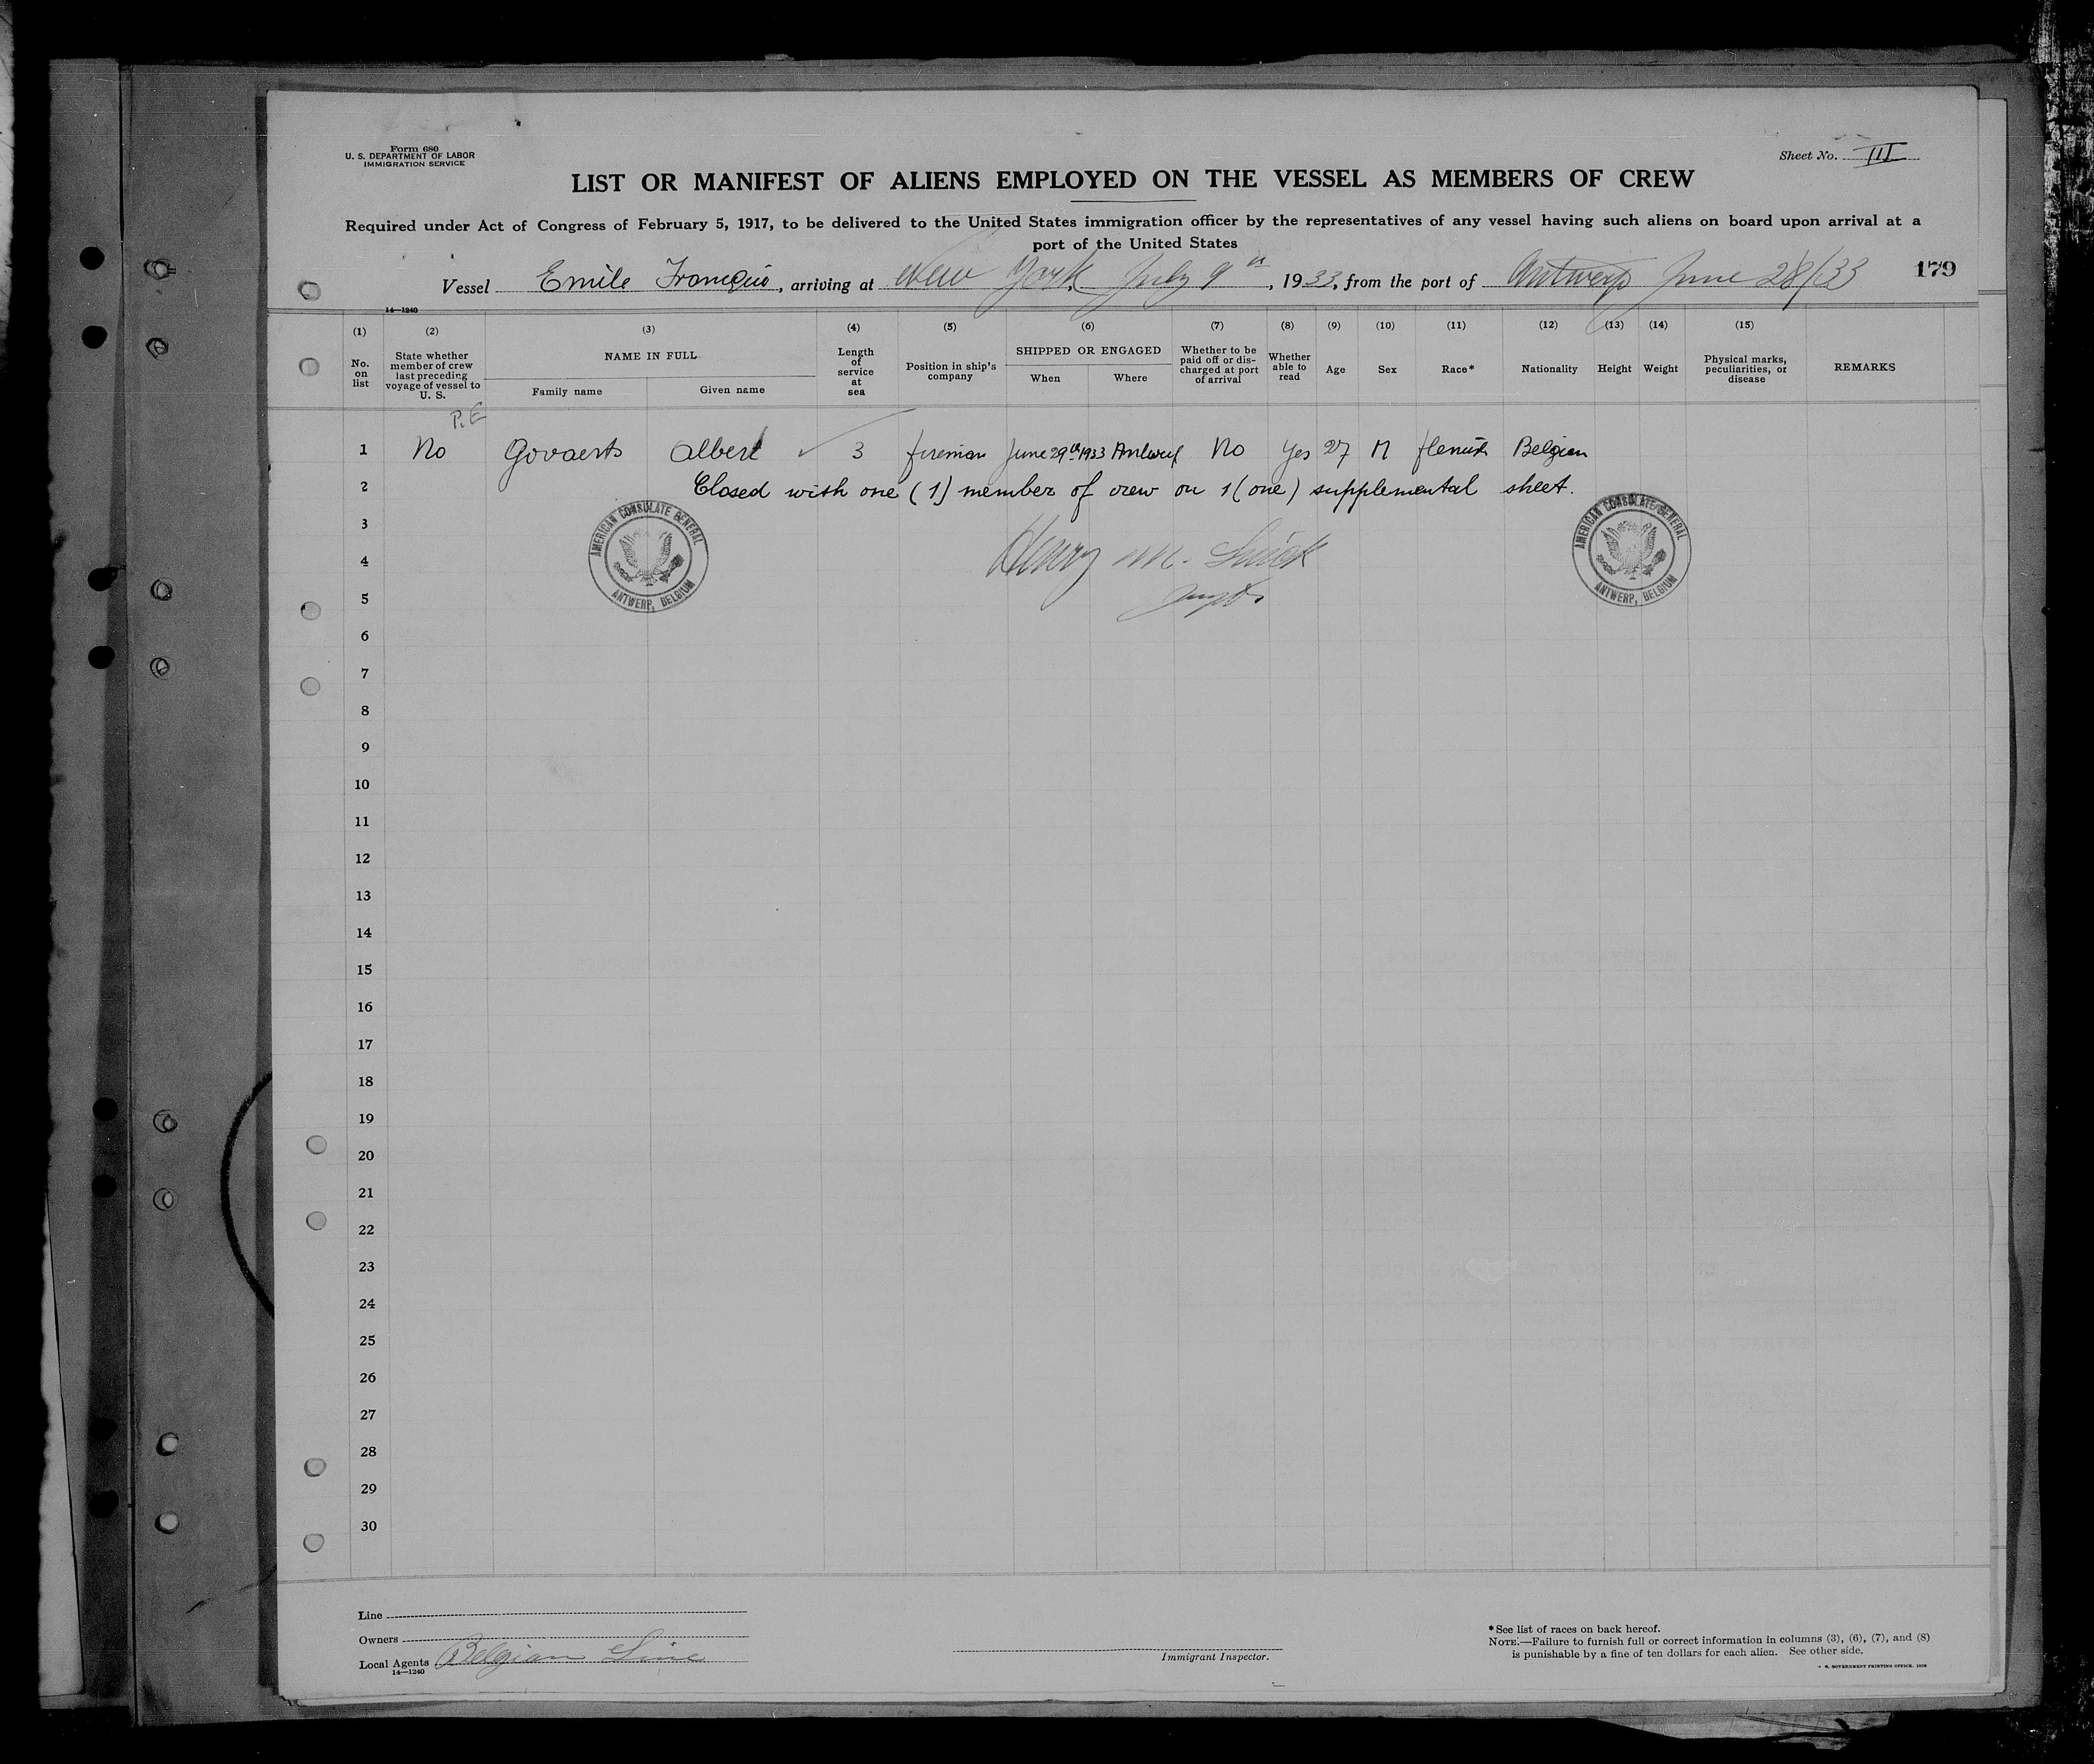 Form 680
U. S. DEPARTMENT OF LABOR
IMMIGRATION SERVICE
Sheet No. III
LIST OR MANIFEST OF ALIENS EMPLOYED ON THE VESSEL AS MEMBERS OF CREW
Required under Act of Congress of February 5, 1917, to be delivered to the United States immigration officer by the representatives of any vessel having such aliens on board upon arrival at a
port of the United States
Vessel Emile Francqui, arriving at New York, July 9th, 1933, from the port of Antwerp June 28/33 179
14—1240
(1) (2) (3) (4) (5) (6) (7) (8) (9) (10) (11) (12) (13) (14) (15)
No. on list
State whether member of crew last preceding voyage of vessel to U. S.
NAME IN FULL
Family name
Given name
Length of service at sea
Position in ship's company
SHIPPED OR ENGAGED
When
Where
Whether to be paid off or discharged at port of arrival
Whether able to read
Age
Sex
Race*
Nationality
Height
Weight
Physical marks, peculiarities, or disease
REMARKS
P.E
1 No Govaerts Albert 3 fireman June 29th 1933 Antwerp No Yes 27 M flemish Belgian
2 Closed with one (1) member of crew on 1 (one) supplemental sheet.
3
4 Henry M.
5
AMERICAN CONSULATE GENERAL
ANTWERP, BELGIUM
AMERICAN CONSULATE GENERAL
ANTWERP, BELGIUM
6
7
8
9
10
11
12
13
14
15
16
17
18
19
20
21
22
23
24
25
26
27
28
29
30
Line
Owners
Local Agents Belgian Line
14—1240
Immigrant Inspector.
*See list of races on back hereof.
NOTE.—Failure to furnish full or correct information in columns (3), (6), (7), and (8)
is punishable by a fine of ten dollars for each alien. See other side.
GOVERNMENT PRINTING OFFICE